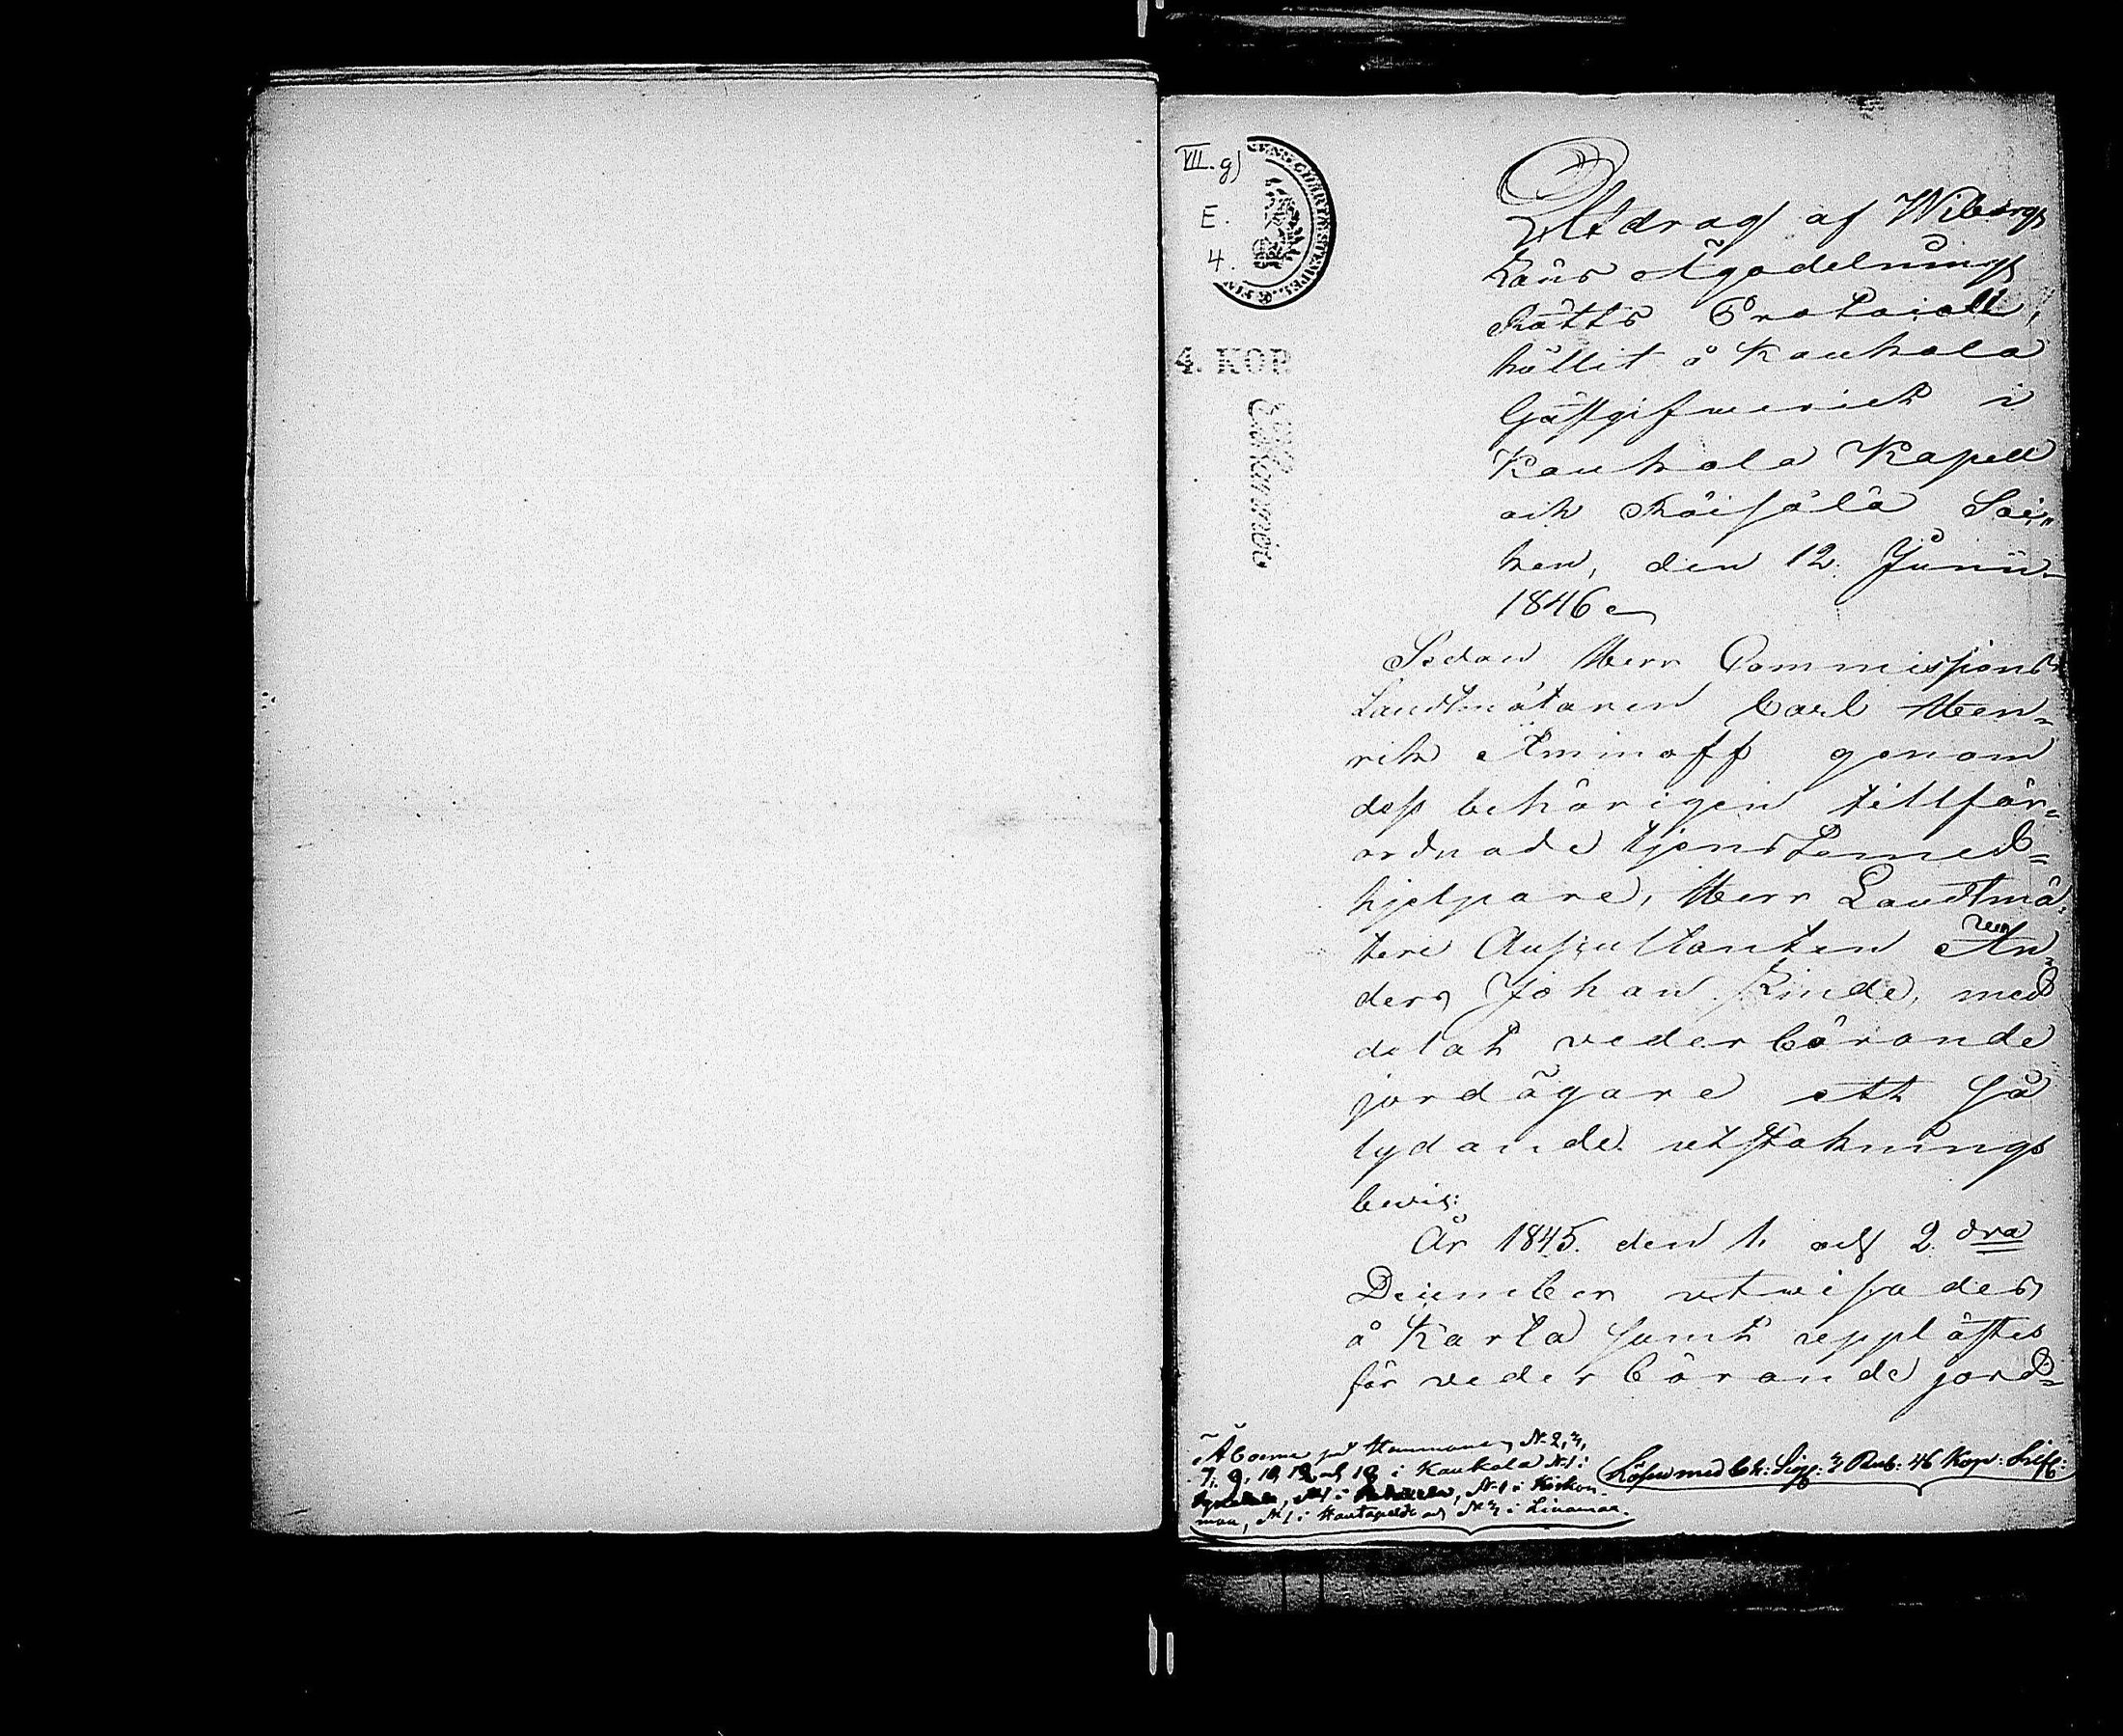 VII. g)
E.
4.
4. KOP.
Utdrag af Wiborgs
Läns Ägodelnings
Rätts Protocoll,
hållit å Kaukola
Gästgifweriet i
Kaukola Kapell
och Räisälä Soc„
ken, den 12. Junii
1846.
Sedan Herr Commissions
Landtmätaren Carl Hen„
rik Aminoff genom
dess behörigen tillför„
ordnade tjenstemed„
hjelpare, Herr Landtmä„
teri Auscultanten An„
ders Johan Linde, med
delat vederbörande
jordägare ett så
lydande utstaknings
bevis:
År 1845. den 1. och 2. dra
December utwisades
å Karta samt upplästes
för vederbörande jord„
Åboerne på Hemmanen N. 2, 3,
7, 9, 10, 12 och 18 i Kaukola N. 1 i
N. 1 i N. 1 i Kirkon„
maa, N. 1 i Hautapelto och N. 3 i Linamaa.
Lösen med 3 Rub: 46 Kop: Silf: